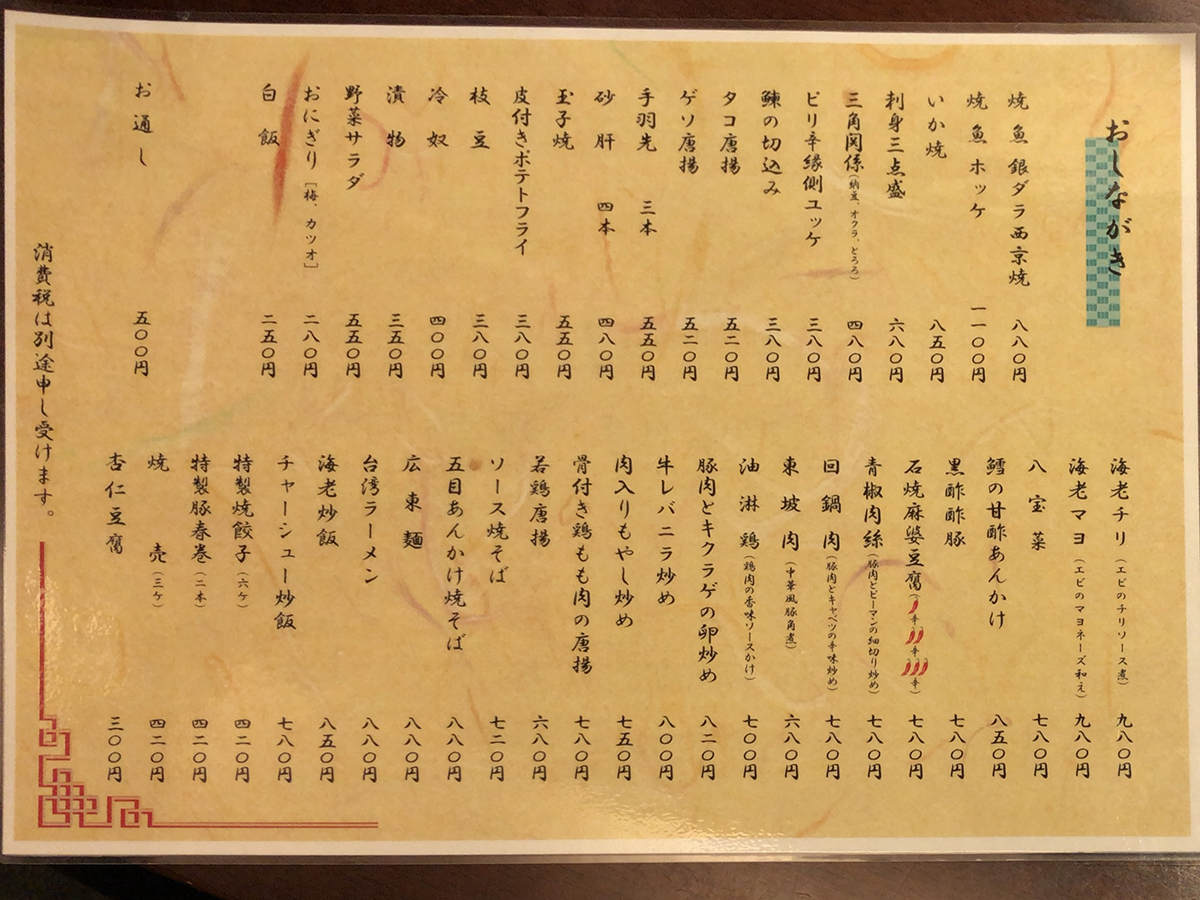 おしながき
焼魚銀ダラ西京焼 八八〇円
焼魚ホッケ 一一〇〇円
いか焼 八五〇円
刺身三点盛 六八〇円
三角関係(納豆、オクラ、とろろ) 四八〇円
ピリ辛縁側ユッケ 三八〇円
鰊の切込み 三八〇円
タコ唐揚 五二〇円
ゲソ唐揚 五二〇円
手羽先 三本 五五〇円
砂肝 四本 四八〇円
玉子焼 五五〇円
皮付きポテトフライ 三八〇円
枝豆 三八〇円
冷奴 四〇〇円
漬物 三五〇円
野菜サラダ 五五〇円
おにぎり[梅、カツオ] 二八〇円
白飯 二五〇円
お通し 五〇〇円
海老チリ(エビのチリソース煮) 九八〇円
海老マヨ(エビのマヨネーズ和え) 九八〇円
八宝菜 七八〇円
鱈の甘酢あんかけ 八五〇円
黒酢酢豚 七八〇円
石焼麻婆豆腐(辛 辛 辛) 七八〇円
青椒肉絲(豚肉とピーマンの細切り炒め) 七八〇円
回鍋肉(豚肉とキャベツの辛味炒め) 七八〇円
東坡肉(中華風豚角煮) 六八〇円
油淋鶏(鶏肉の香味ソースかけ) 七〇〇円
豚肉とキクラゲの卵炒め 八二〇円
牛レバニラ炒め 八〇〇円
肉入りもやし炒め 七五〇円
骨付き鶏もも肉の唐揚 七八〇円
若鶏唐揚 六八〇円
ソース焼そば 七二〇円
五目あんかけ焼そば 八八〇円
広東麺 八八〇円
台湾ラーメン 八八〇円
海老炒飯 八五〇円
チャーシュー炒飯 七八〇円
特製焼餃子(六ケ) 四二〇円
特製豚春巻(二本) 四二〇円
焼売(三ケ) 四二〇円
杏仁豆腐 三〇〇円
消費税は別途申し受けます。